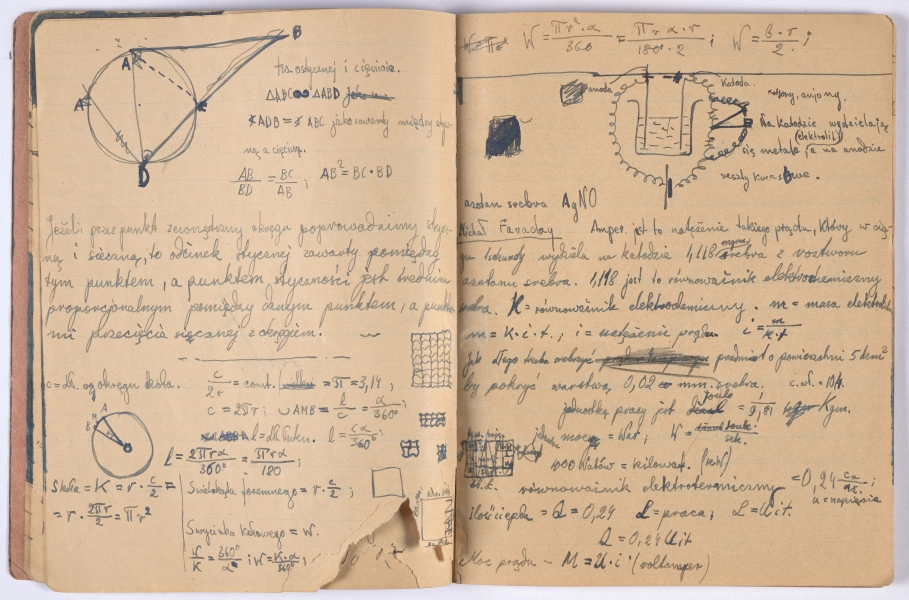 B
A
A
D
tw. o stycznej i cięciwie.
△ABC ∾ △ABD
∢ADB = ∢ABC jako zawarty między stycz-
ną a cięciwą.
AB/BD = BC/AB ; AB² = BC·BD
Jeżeli przez punkt zewnętrzny okręgu poprowadzimy stycz-
ną i sieczną, to odcinek stycznej zawarty pomiędzy
tym punktem, a punktem styczności jest średnim
proporcjonalnym pomiędzy danym punktem, a punkta-
mi przecięcia siecznej z okręgiem.
c = dł. okręgu koła.
c/2r = const. = π = 3,14 ;
c = 2πr ; ∪AMB = l/c = α/360° ;
l = dł. łuku. l = cα/360° ;
A
M
B
l = 2πrα/360° = πrα/180 ;
Koła = K = r · c/2 =
= r · 2πr/2 = πr²
foremnego = r · c/2 ;
Swycinka kołowego = W.
W/K = 360°/α° ; W = K·α/360° ;
W = πr²·α/360 = πr·α·r/180°·2 ; W = b·r/2 ;
anoda
Katoda.
katjony, anjony.
Na katodzie wydzielają
(elektrolit)
się metale, a na anodzie
reszty kwasowe.
azotan srebra AgNO
Michał Faraday Amper. jest to natężenie takiego prądu, który w cią-
gu 1 sekundy wydziela na katodzie 1,118 mgms srebra z roztworu
azotanu srebra. 1,118 jest to równoważnik elektrochemiczny
srebra. K = równoważnik elektrochemiczny. m = masa elektrolitu
m = K·i·t. ; i = natężenie prądu i = m/K·t
Jak długo trzeba srebrzyć przedmiot o powierzchni 5 dcm²
by pokryć warstwą 0,02 mm. srebra. c.wł. = 10,4.
jednostką pracy jest Joule = 1/9,81 Kgm.
jedn. mocy = Wat ; W = Joule/sek.
1000 Watów = kilowat. (kW)
równoważnik elektrotermiczny = 0,24 ca/dż. ;
u = napięcie
ilość ciepła = Q = 0,24 L = praca ; L = Uit.
Q = 0,24 Uit
Moc prądu – M = U·i · (voltamper)